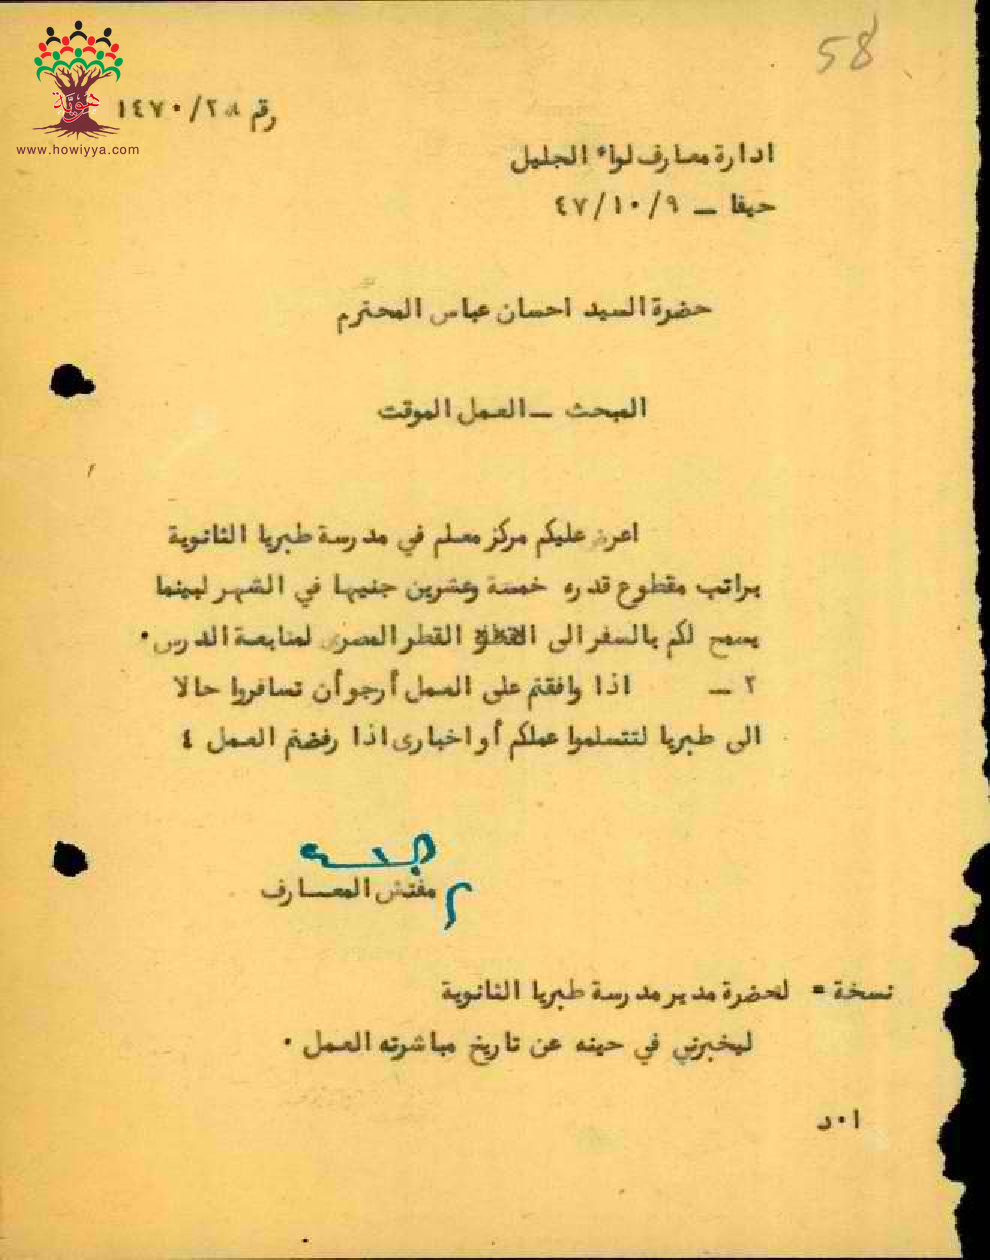 58
هوية
www.howiyya.com
رقم ١٤٧٠/٢٨
ادارة معارف لواء الجليل
حيفا – ٤٧/١٠/٩
حضرة السيد احسان عباس المحترم
المبحث – العمل الموقت
اعرض عليكم مركز معلم في مدرسة طبريا الثانوية
براتب مقطوع قدره خمسة وعشرين جنيها في الشهر لبينما
يسمح لكم بالسفر الى القطر المصرى لمتابعة الدرس.
٢ – اذا وافقتم على العمل أرجو أن تسافروا حالا
الى طبريا لتتسلموا عملكم أو اخبارى اذا رفضتم العمل ٤
مفتش المعارف
نسخة = لحضرة مدير مدرسة طبريا الثانوية
ليخبرني في حينه عن تاريخ مباشرته العمل .
ا.د